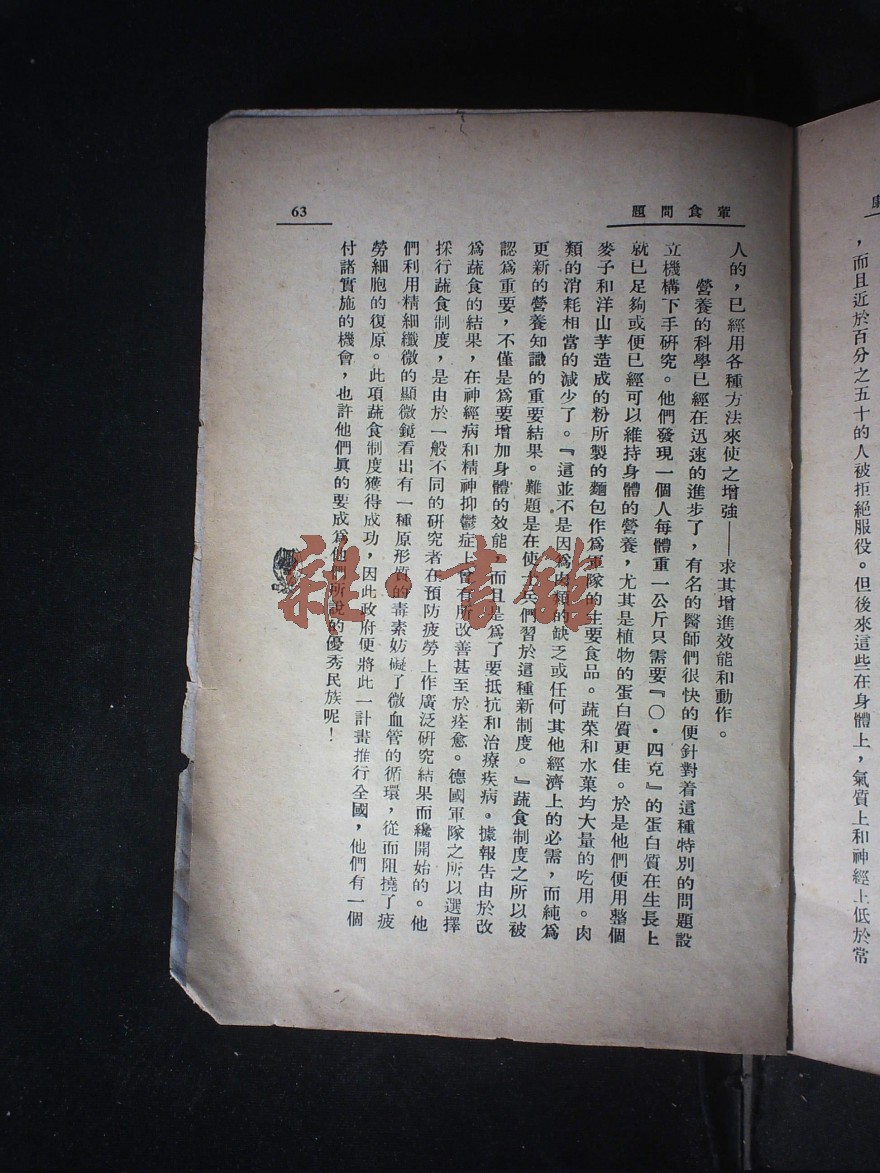 ，而且近於百分之五十的人被拒絕服役。但後來這些在身體上，氣質上和神經上低於常
題問食葷
63
人的，已經用各種方法來使之增強——求其增進效能和動作。
營養的科學已經在迅速的進步了，有名的醫師們很快的便針對着這種特別的問題設
立機構下手硏究。他們發現一個人每體重一公斤只需要『〇・四克』的蛋白質在生長上
就已足夠或便已經可以維持身體的營養，尤其是植物的蛋白質更佳。於是他們便用整個
麥子和洋山芋造成的粉所製的麵包作爲軍隊的主要食品。蔬菜和水菓均大量的吃用。肉
類的消耗相當的減少了。『這並不是因爲肉類的缺乏或任何其他經濟上的必需，而純爲
更新的營養知識的重要結果。難題是在使士兵們習於這種新制度。』蔬食制度之所以被
認爲重要，不僅是爲要增加身體的效能，而且是爲了要抵抗和治療疾病。據報告由於改
爲蔬食的結果，在神經病和精神抑鬱症上會有所改善甚至於痊愈。德國軍隊之所以選擇
採行蔬食制度，是由於一般不同的硏究者在預防疲勞上作廣泛硏究結果而纔開始的。他
們利用精細纖微的顯微鏡看出有一種原形質的毒素妨礙了微血管的循環，從而阻撓了疲
勞細胞的復原。此項蔬食制度獲得成功，因此政府便將此一計畫推行全國，他們有一個
付諸實施的機會，也許他們眞的要成爲他們所說的優秀民族呢！
雜·書館